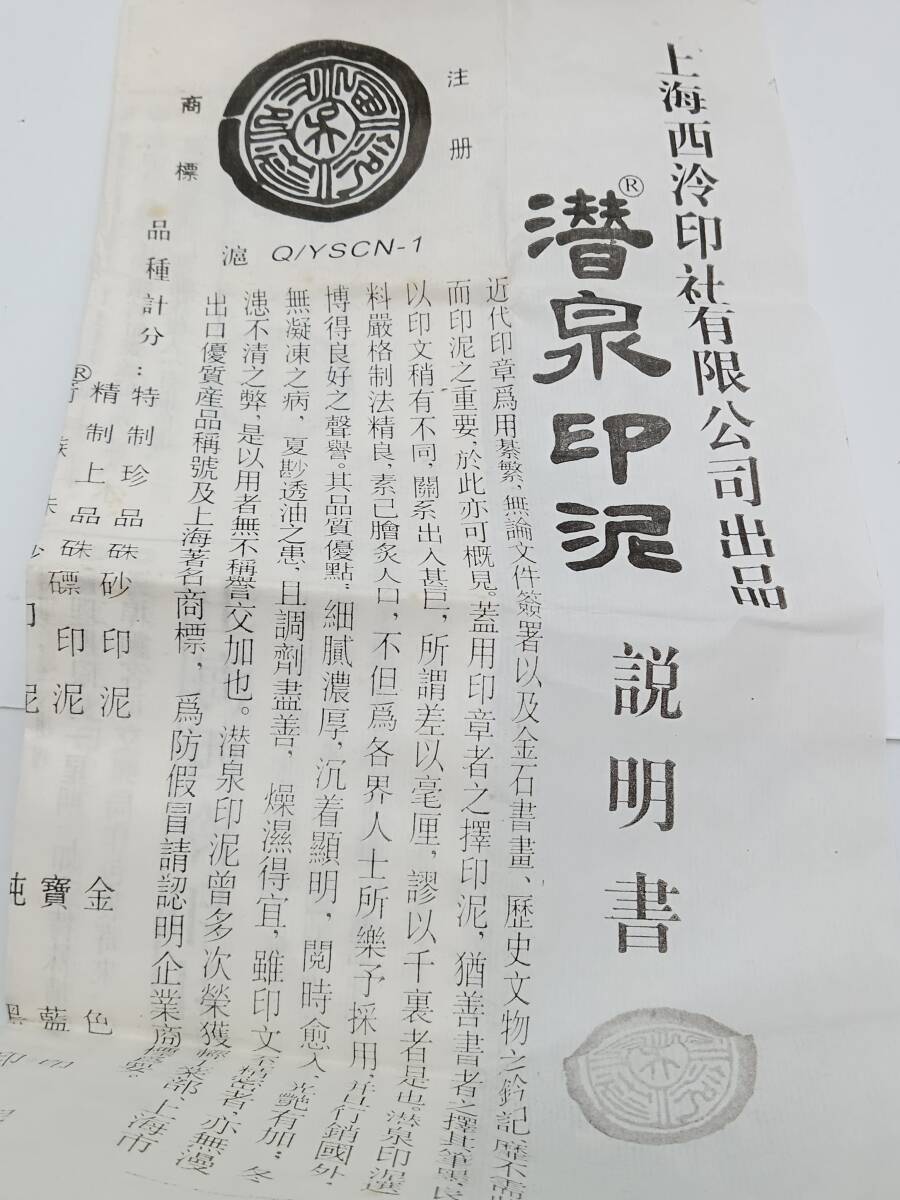 上海西泠印社有限公司出品
潜泉印泥®
説明書
近代印章爲用綦繁，無論文件簽署以及金石書畫、歷史文物之鈐記
而印泥之重要，於此亦可概見。蓋用印章者之擇印泥，猶善書者之擇其筆墨，
以印文稍有不同，關系出入甚巨，所謂差以毫厘，謬以千裏者是也。潜泉印泥選
料嚴格制法精良，素已膾炙人口，不但爲各界人士所樂予採用，并行銷國外，
博得良好之聲譽。其品質優點：細膩濃厚，沉着顯明，閲時愈久，光艷有加；冬
無凝凍之病，夏尠透油之患，且調劑盡善，燥濕得宜，雖印文　者，亦無漫
漶不清之弊，是以用者無不稱譽交加也。潜泉印泥曾多次榮獲　部、上海市
出口優質産品稱號及上海著名商標，爲防假冒請認明企業商標
注册
商標
滬 Q/YSCN-1
品種計分：
特制珍品硃砂印泥
精制上品硃磦印泥
®
金
寶
純
色
藍
黑
印